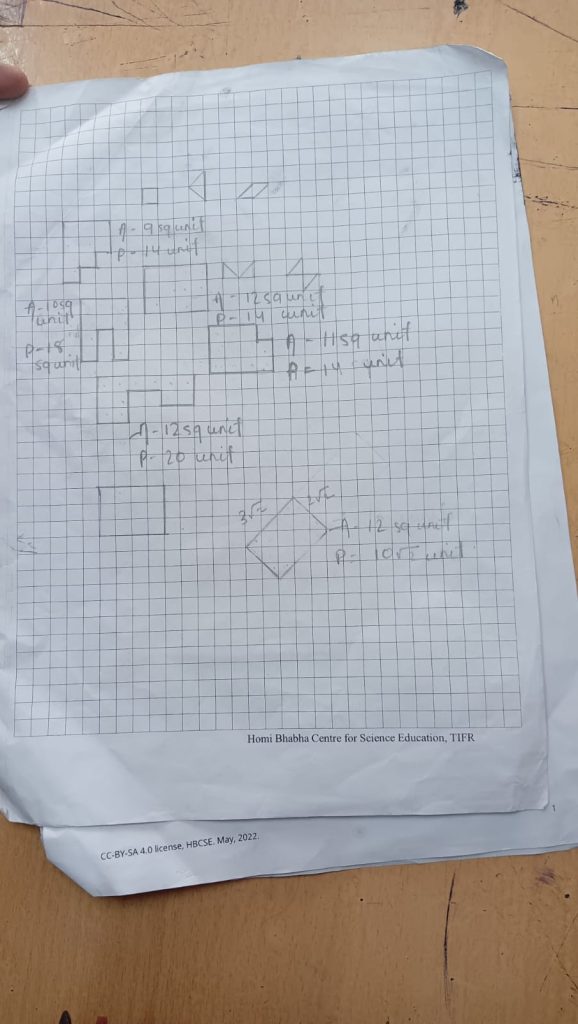 A - 9 sq unit
P - 14 unit
A - 10 sq
unit
P - 18
sq unit
A - 12 sq unit
P - 14 unit
A - 11 sq unit
P = 14 unit
A - 12 sq unit
P - 20 unit
3√2
2√2
A - 12 sq unit
P - 10√2 unit
Homi Bhabha Centre for Science Education, TIFR
1
CC-BY-SA 4.0 license, HBCSE. May, 2022.